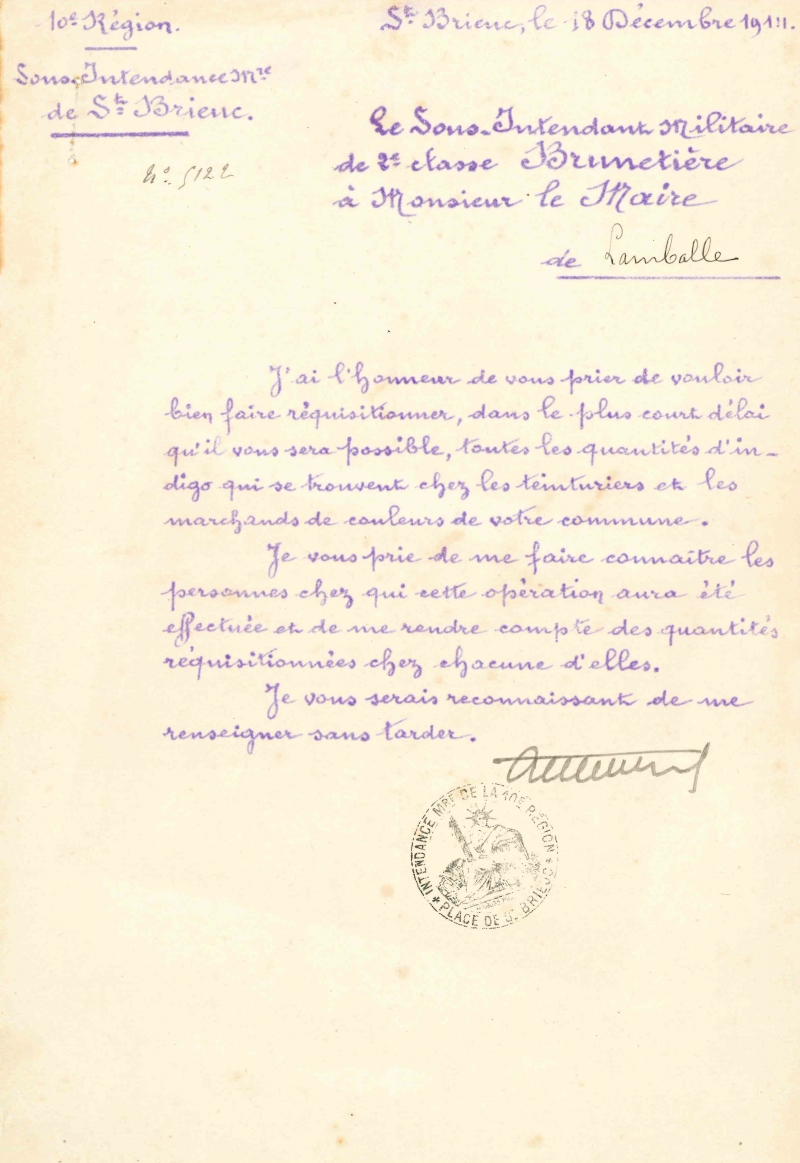 10e Région.
St Brieuc, le 18 Décembre 1914.
Sous-Intendance Mre
de St Brieuc.
No 5122
Le Sous-Intendant Militaire
de 2e classe Brunetière
à Monsieur le Maire
de Lamballe
J'ai l'honneur de vous prier de vouloir
bien faire réquisitionner, dans le plus court délai
qu'il vous sera possible, toutes les quantités d'in-
digo qui se trouvent chez les teinturiers et les
marchands de couleurs de votre commune.
Je vous prie de me faire connaître les
personnes chez qui cette opération aura été
effectuée et de me rendre compte des quantités
réquisitionnées chez chacune d'elles.
Je vous serais reconnaissant de me
renseigner sans tarder.
INTENDANCE MRE DE LA 10E RÉGION
* PLACE DE ST BRIEUC *